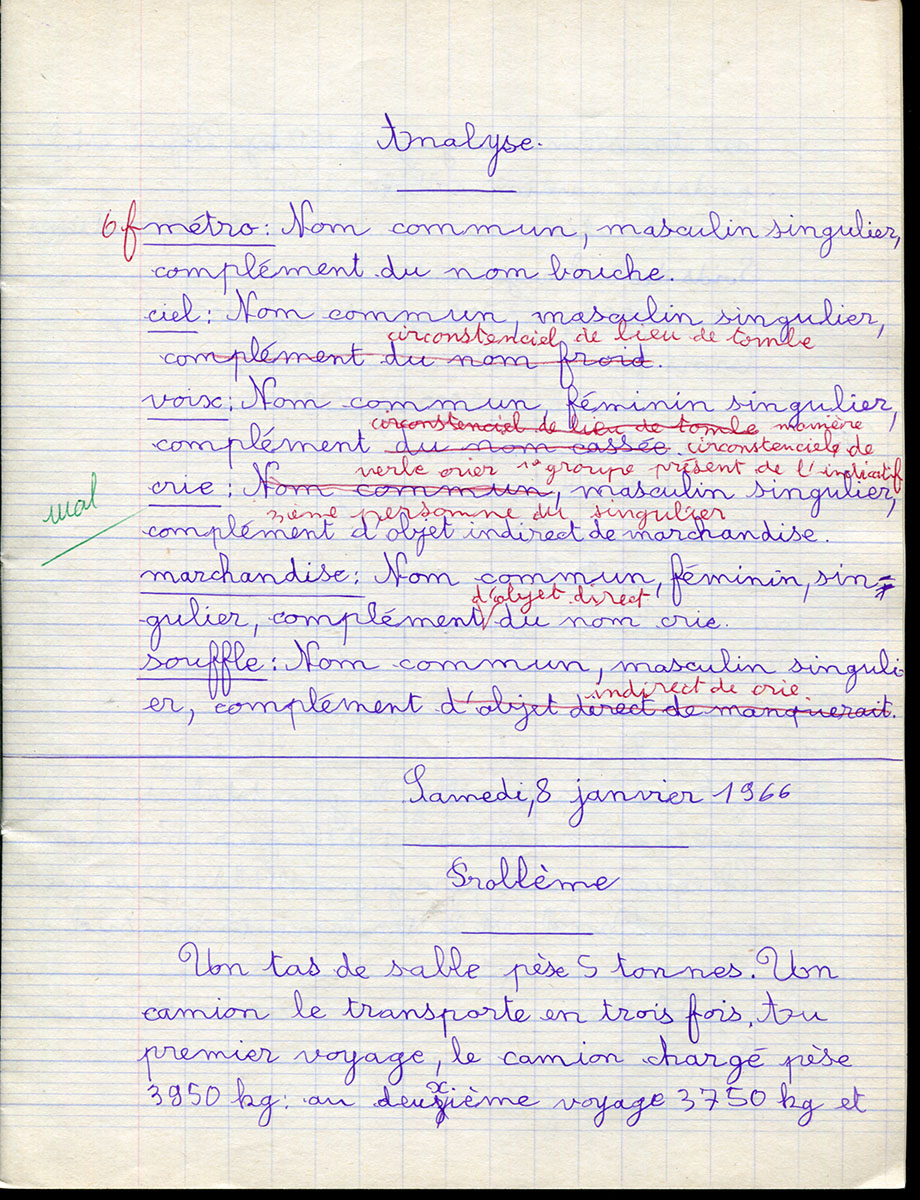 Analyse.
6f métro: Nom commun, masculin singulier,
complément du nom bouche.
ciel: Nom commun, masculin singulier,
circonstenciel de lieu de tombe
complément du nom froid.
voix: Nom commun, féminin singulier,
circonstenciel de lieu de tombe manière
complément du nom cassée. circonstenciel de
verbe crier 1er groupe présent de l'indicatif
crie: Nom commun, masculin singulier,
mal
3ème personne du singulier
complément d'objet indirect de marchandise.
marchandise: Nom commun, féminin, sin-
d'objet direct
gulier, complément du nom crie.
souffle: Nom commun, masculin singuli-
indirect de crie.
er, complément d'objet direct de manquerait.
Samedi, 8 janvier 1966
Problème
Un tas de sable pèse 5 tonnes. Un
camion le transporte en trois fois. Au
premier voyage, le camion chargé pèse
3950 kg: au deuxième voyage 3750 kg et